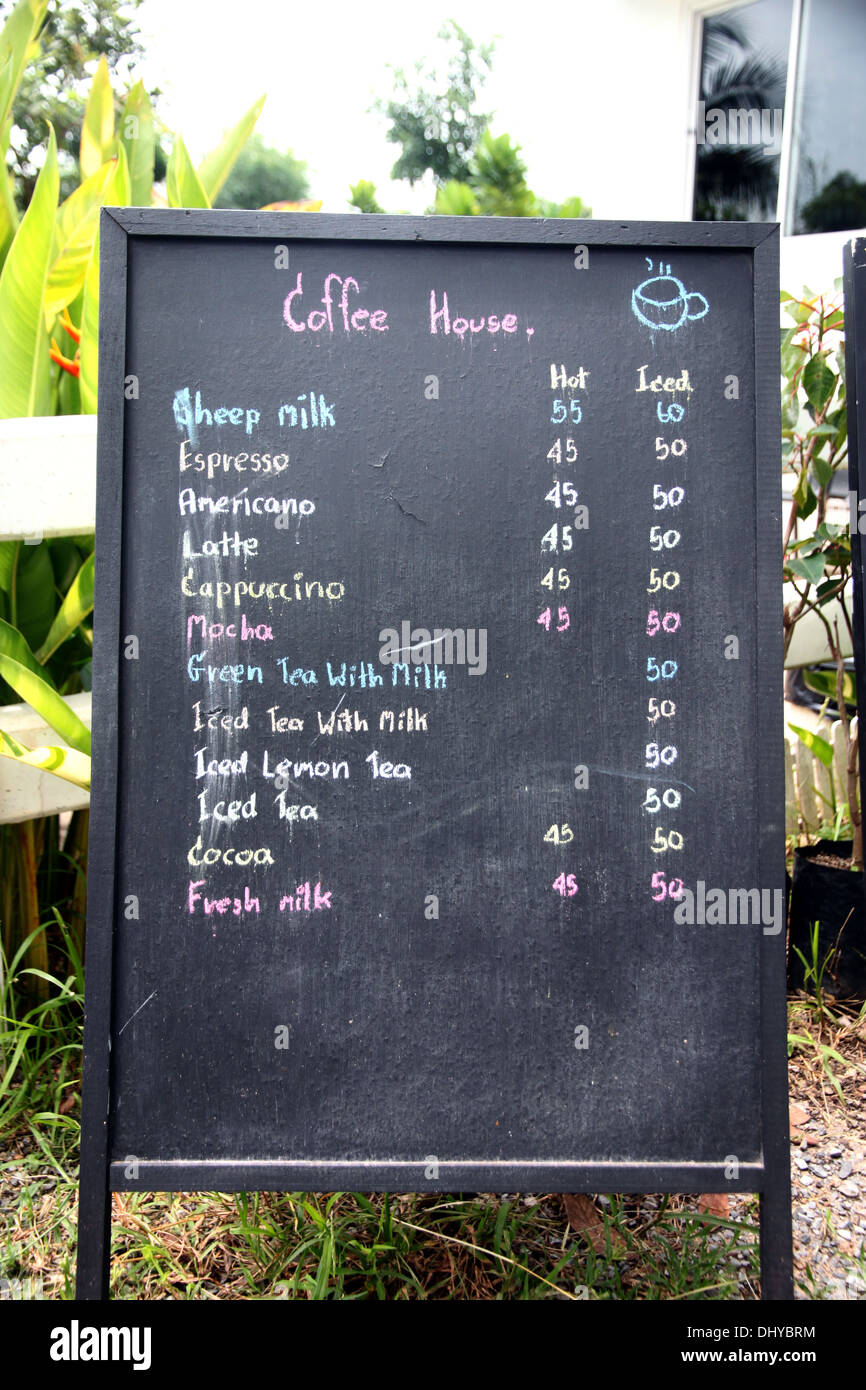 Coffee House.
Hot Iced
Sheep milk 55 60
Espresso 45 50
Americano 45 50
Latte 45 50
Cappuccino 45 50
Mocha 45 50
Green Tea With Milk 50
Iced Tea With Milk 50
Iced Lemon Tea 50
Iced Tea 50
Cocoa 45 50
Fresh milk 45 50
alamy
Image ID: DHYBRM
www.alamy.com